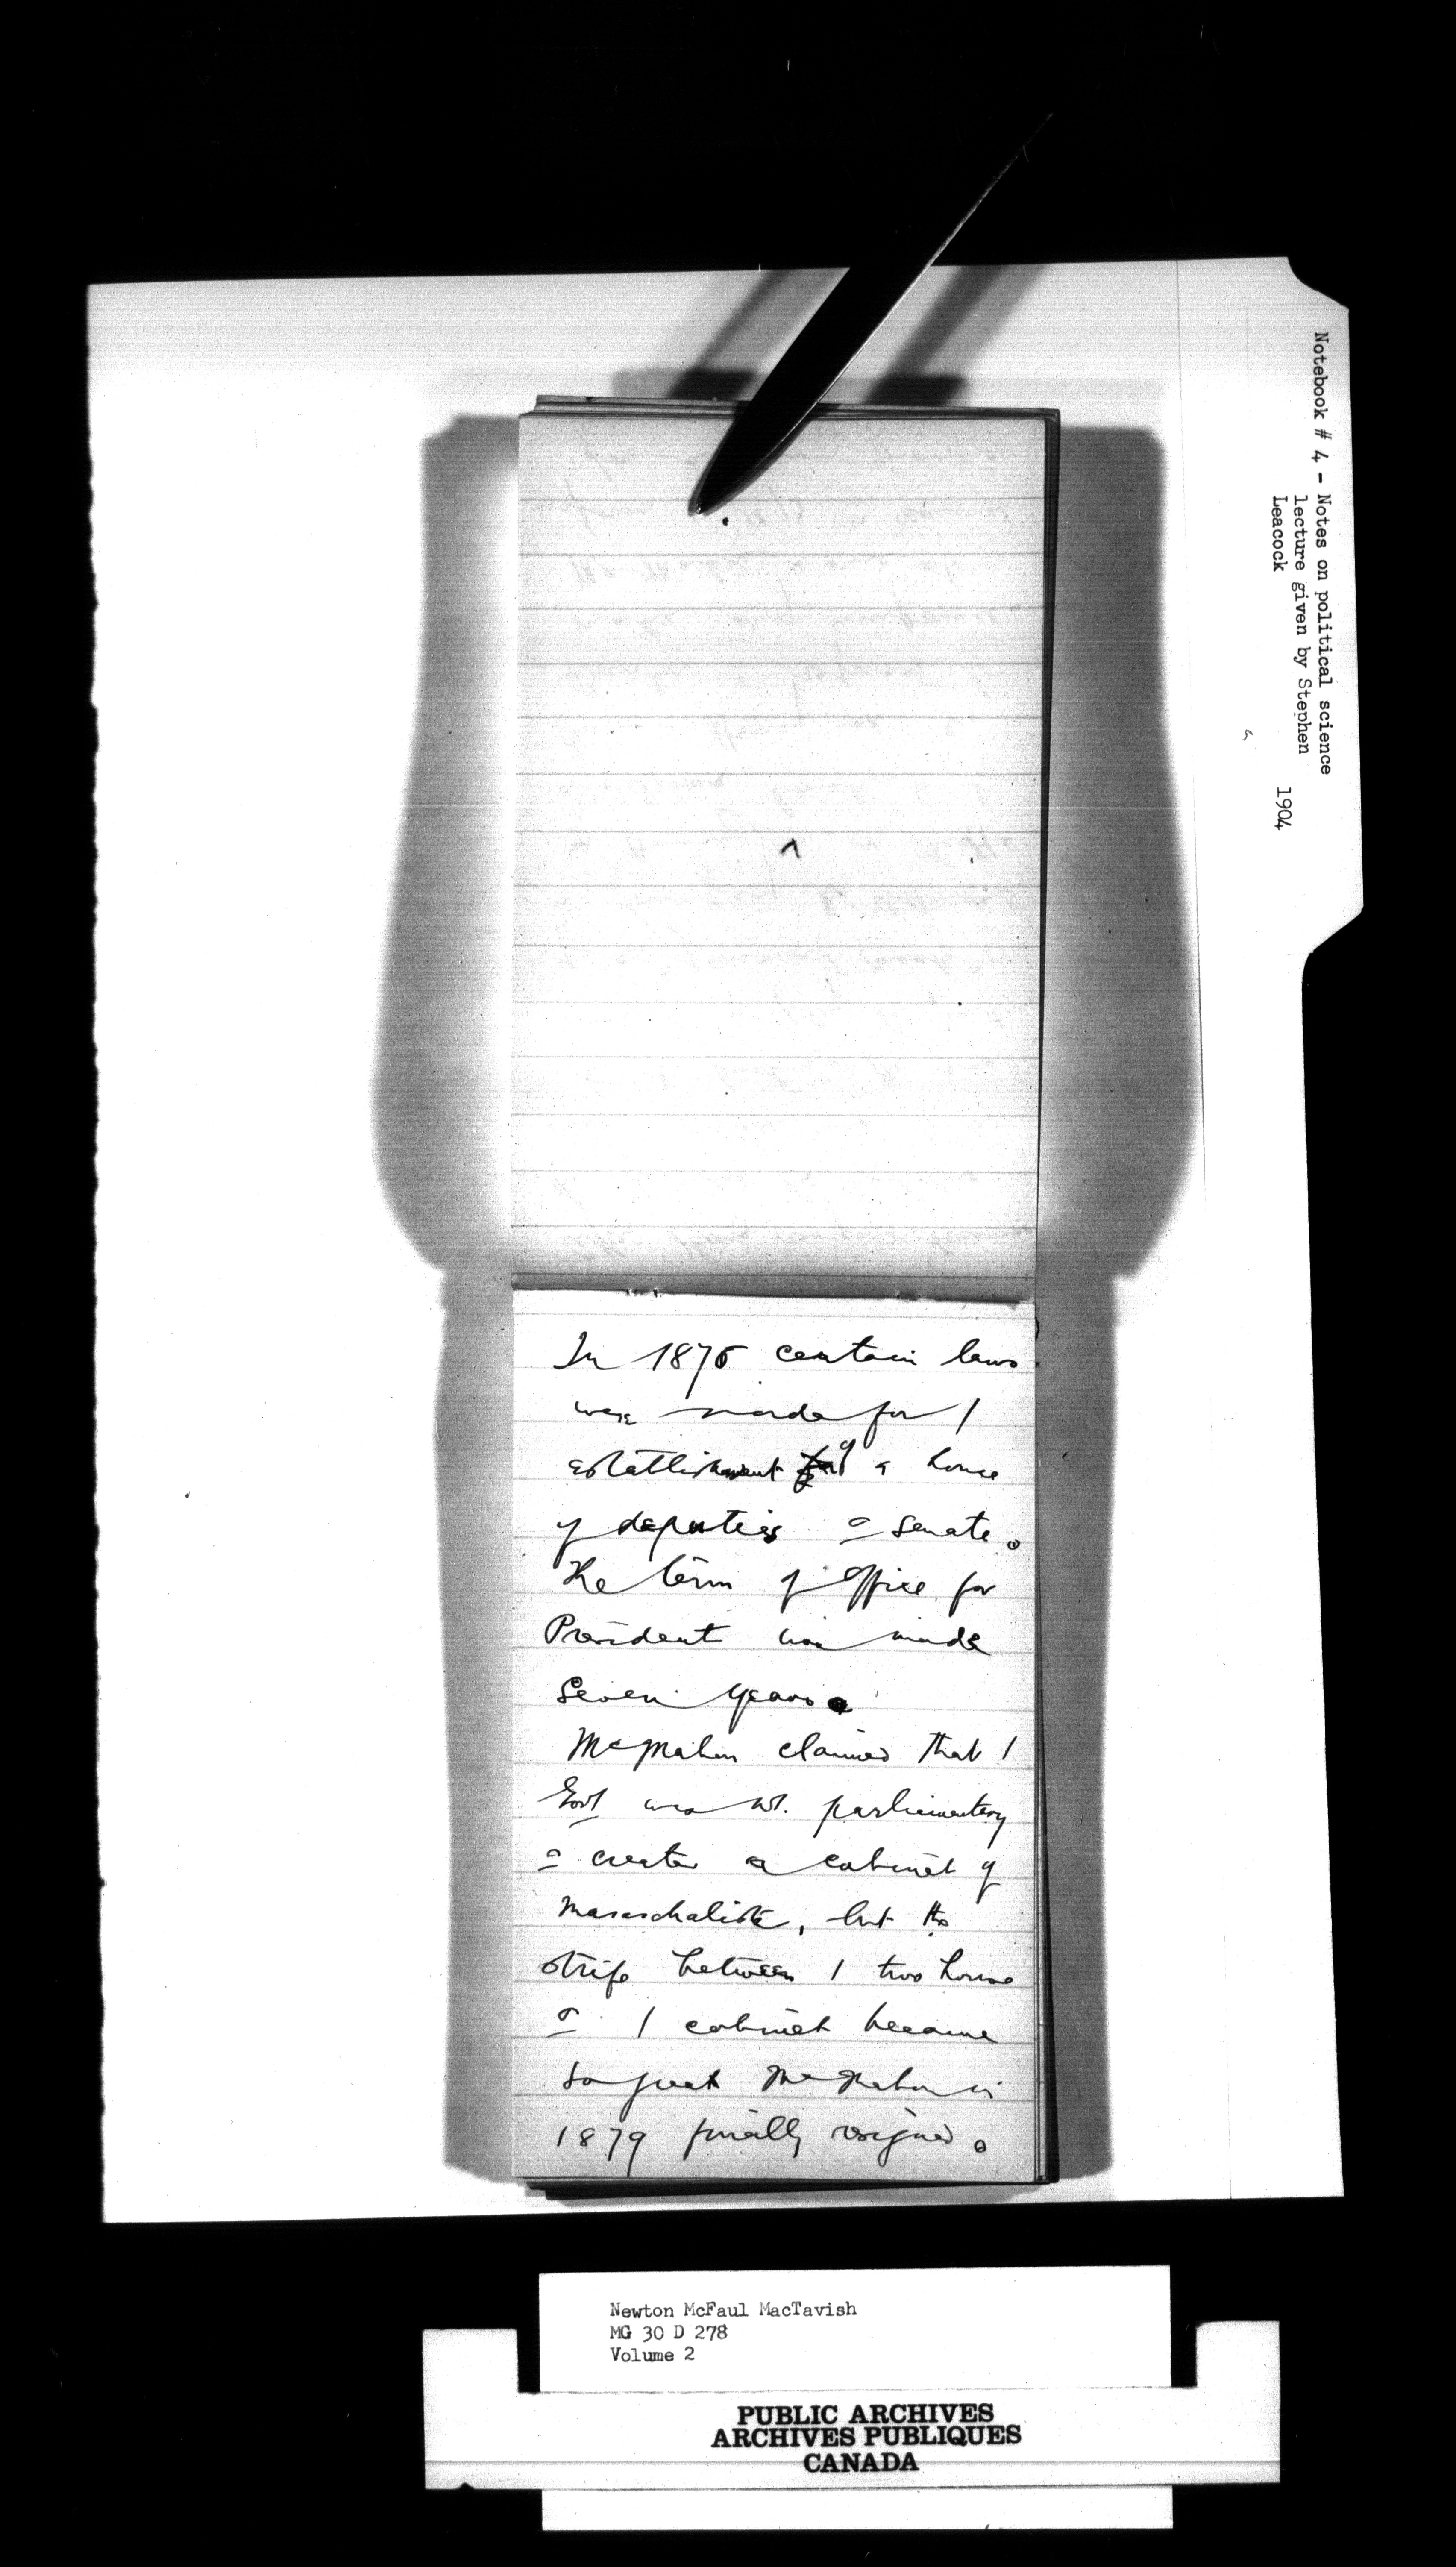 Notebook # 4 - Notes on political science
lecture given by Stephen
Leacock 1904
In 1875 certain laws
were made for /
establishment of a house
of deputies & senate.
The term of office for
President was made
Seven years.
McMahon claimed that /
Govt was not parliamentary
& creates a cabinet of
Maraschalists, but the
strife between / two house
& / cabinet became
so great McMahon in
1879 finally resigned.
Newton McFaul MacTavish
MG 30 D 278
Volume 2
PUBLIC ARCHIVES
ARCHIVES PUBLIQUES
CANADA